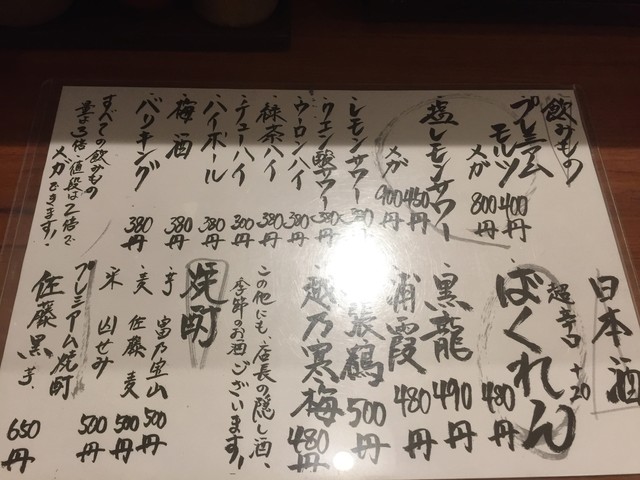 飲みもの
プレミアム
モルツ 400円
メガ 800円
塩レモンサワー 450円
メガ 900円
レモンサワー
クエン酸サワー 380
ウーロンハイ 380円
緑茶ハイ 380円
チューハイ 300円
ハイボール 380円
梅酒 380円
バリキング 380円
すべての飲みもの
量は3倍・値段は2倍で
メガできます!
日本酒
超辛口 +20
ばくれん 480円
黒龍 490円
浦霞 480円
張鶴 500円
越乃寒梅 480円
この他にも、店長の隠し酒、
季節のお酒ございます!
焼酎
芋 富乃宝山 500円
麦 佐藤麦 500円
米 山せみ 500円
プレミアム焼酎
佐藤黒 芋 650円